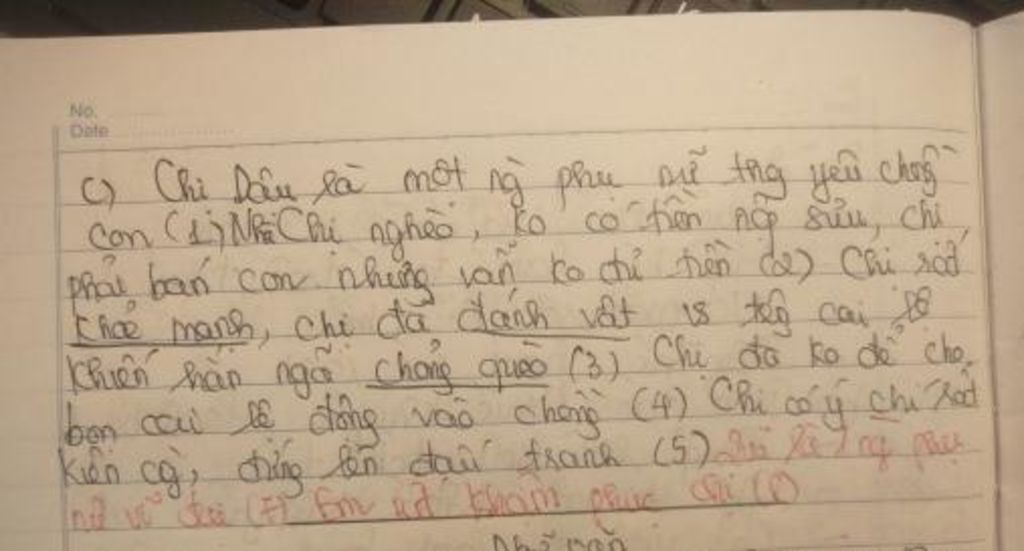 No.
Date
c) Chị Dậu là một ng phụ nữ thg yêu chồng
con (1) Nhà Chị nghèo, ko có tiền nộp sưu, chị
phải bán con nhưng vẫn ko đủ tiền (2) Chị rất
khoẻ mạnh, chị đã đánh vật vs tên cai lệ
khiến hắn ngã chỏng quèo (3) Chị đã ko để cho
bọn cai lệ động vào chồng (4) Chị có ý chí rất
kiên cg, đứng lên đấu tranh (5) ng phụ
nữ vĩ đại (7) Em rất khâm phục chị